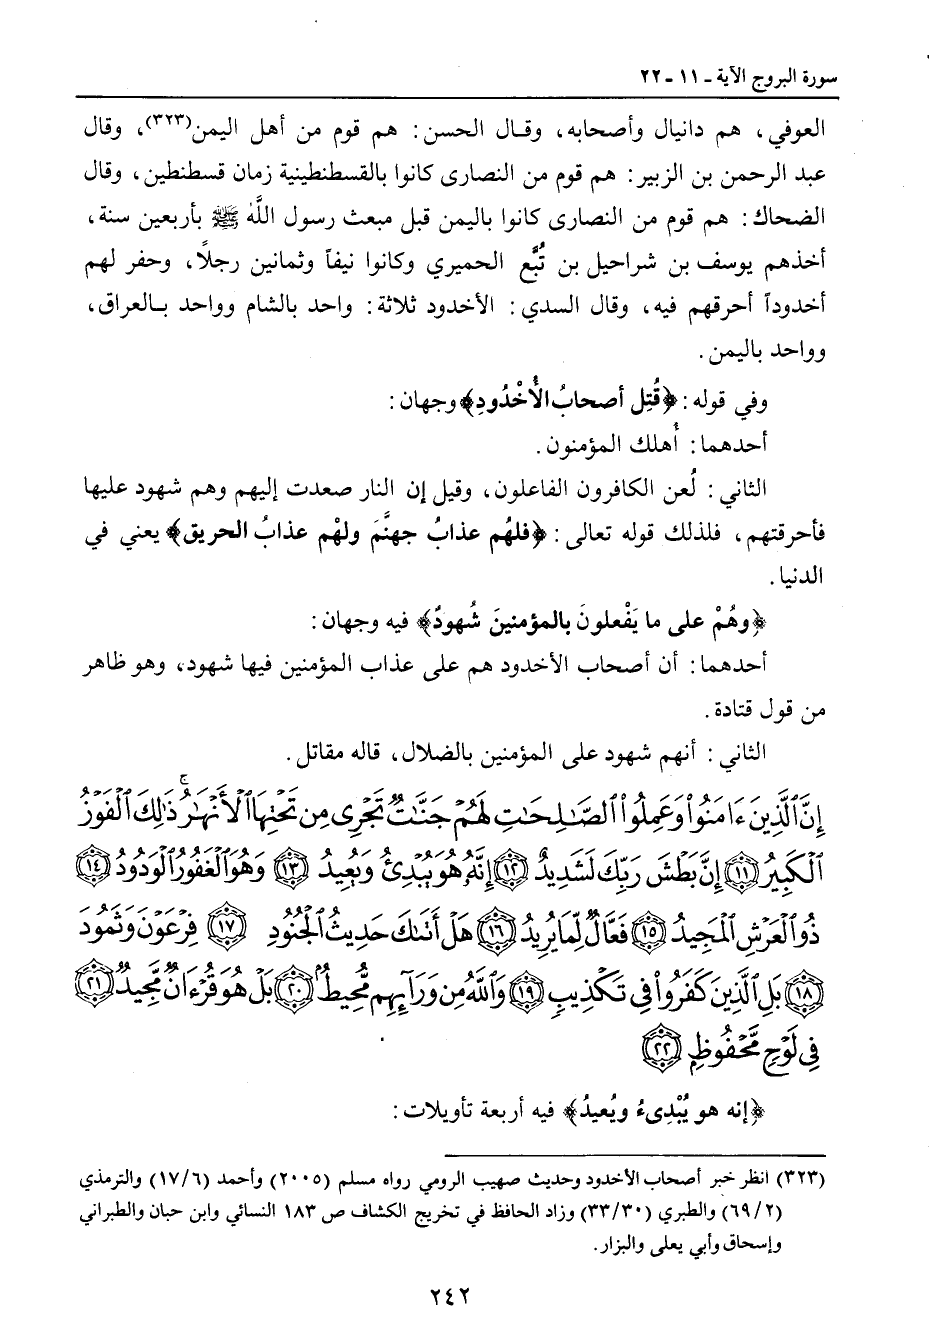 سورة البروج الآية ـ ١١ ـ ٢٢
العوفي، هم دانيال وأصحابه، وقال الحسن: هم قوم من أهل اليمن(٣٢٣)، وقال
عبد الرحمن بن الزبير: هم قوم من النصارى كانوا بالقسطنطينية زمان قسطنطين، وقال
الضحاك: هم قوم من النصارى كانوا باليمن قبل مبعث رسول اللَّه ﷺ بأربعين سنة،
أخذهم يوسف بن شراحيل بن تُبَّع الحميري وكانوا نيفاً وثمانين رجلاً، وحفر لهم
أخدوداً أحرقهم فيه، وقال السدي: الأخدود ثلاثة: واحد بالشام وواحد بالعراق،
وواحد باليمن.
وفي قوله: ﴿قُتِل أصحابُ الأُخْدُودِ﴾ وجهان:
أحدهما: أُهلك المؤمنون.
الثاني: لُعن الكافرون الفاعلون، وقيل إن النار صعدت إليهم وهم شهود عليها
فأحرقتهم، فلذلك قوله تعالى: ﴿فلهُم عذابُ جهنَّمَ ولهُم عذابُ الحريق﴾ يعني في
الدنيا.
﴿وهُمْ على ما يَفْعلونَ بالمؤمنينَ شُهودٌ﴾ فيه وجهان:
أحدهما: أن أصحاب الأخدود هم على عذاب المؤمنين فيها شهود، وهو ظاهر
من قول قتادة.
الثاني: أنهم شهود على المؤمنين بالضلال، قاله مقاتل.
إِنَّ ٱلَّذِينَ ءَامَنُوا۟ وَعَمِلُوا۟ ٱلصَّـٰلِحَـٰتِ لَهُمْ جَنَّـٰتٌ تَجْرِى مِن تَحْتِهَا ٱلْأَنْهَـٰرُ ۚ ذَٰلِكَ ٱلْفَوْزُ
ٱلْكَبِيرُ ﴿١١﴾ إِنَّ بَطْشَ رَبِّكَ لَشَدِيدٌ ﴿١٢﴾ إِنَّهُۥ هُوَ يُبْدِئُ وَيُعِيدُ ﴿١٣﴾ وَهُوَ ٱلْغَفُورُ ٱلْوَدُودُ ﴿١٤﴾
ذُو ٱلْعَرْشِ ٱلْمَجِيدُ ﴿١٥﴾ فَعَّالٌ لِّمَا يُرِيدُ ﴿١٦﴾ هَلْ أَتَىٰكَ حَدِيثُ ٱلْجُنُودِ ﴿١٧﴾ فِرْعَوْنَ وَثَمُودَ
﴿١٨﴾ بَلِ ٱلَّذِينَ كَفَرُوا۟ فِى تَكْذِيبٍ ﴿١٩﴾ وَٱللَّهُ مِن وَرَآئِهِم مُّحِيطٌۢ ﴿٢٠﴾ بَلْ هُوَ قُرْءَانٌ مَّجِيدٌ ﴿٢١﴾
فِى لَوْحٍ مَّحْفُوظٍۭ ﴿٢٢﴾
﴿إنه هو يُبْدِىءُ ويُعيدُ﴾ فيه أربعة تأويلات:
(٣٢٣) انظر خبر أصحاب الأخدود وحديث صهيب الرومي رواه مسلم (٢٠٠٥) وأحمد (١٧/٦) والترمذي
(٦٩/٢) والطبري (٣٣/٣٠) وزاد الحافظ في تخريج الكشاف ص ١٨٣ النسائي وابن حبان والطبراني
وإسحاق وأبي يعلى والبزار.
٢٤٢